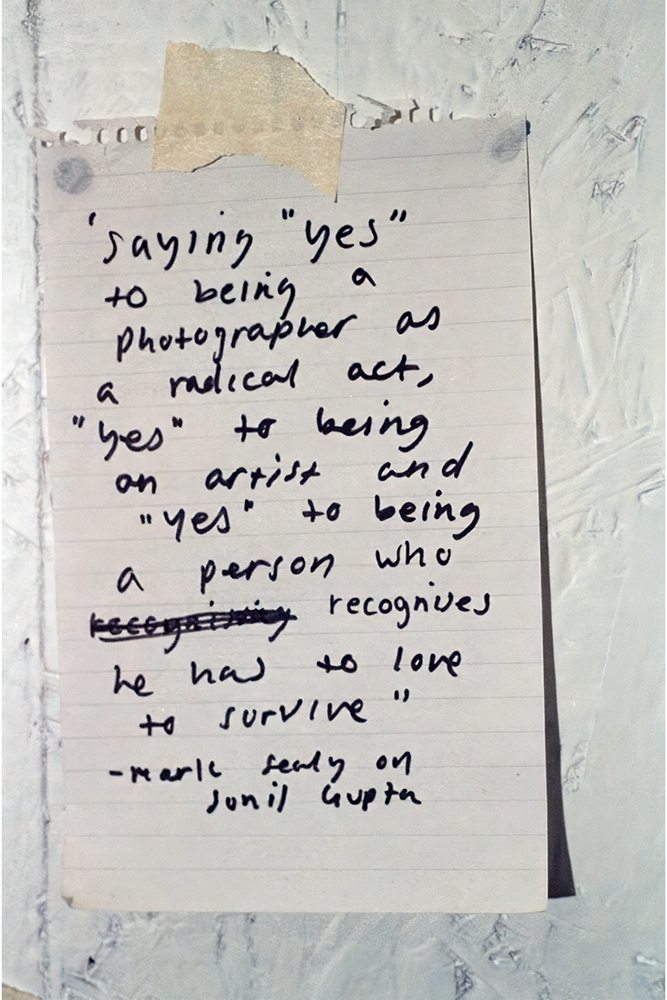 'saying "yes"
to being a
photographer as
a radical act,
"yes" to being
an artist and
"yes" to being
a person who
recognises
he has to love
to survive"
-mark sealy on
sunil Gupta